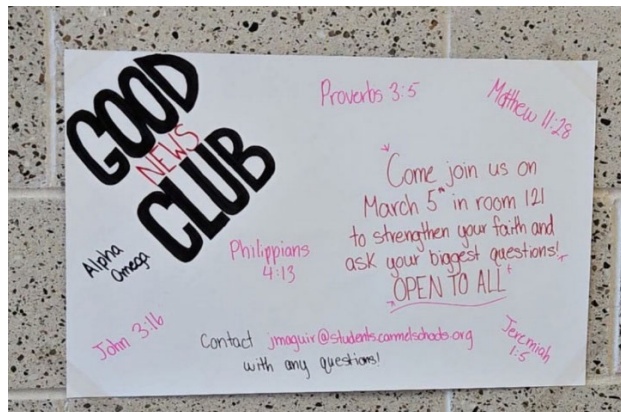 GOOD
NEWS
CLUB
Alpha
Omega
Proverbs 3:5
Matthew 11:28
Come join us on
March 5th in room 121
to strengthen your faith and
ask your biggest questions!
OPEN TO ALL
Philippians
4:13
John 3:16
Contact jmaguir@students.carmelschools.org
with any questions!
Jeremiah
1:5